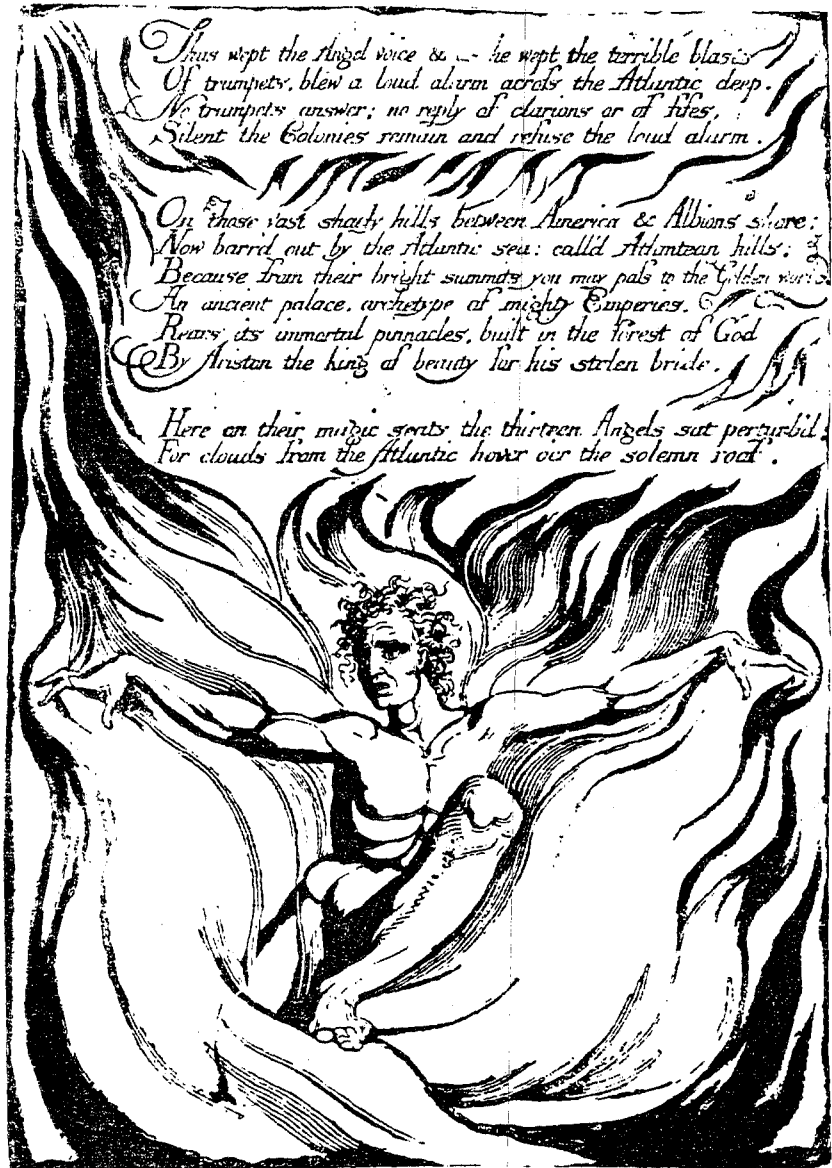 Thus wept the Angel voice & as he wept the terrible blasts
Of trumpets, blew a loud alarm across the Atlantic deep.
No trumpets answer; no reply of clarions or of fifes,
Silent the Colonies remain and refuse the loud alarm.
On those vast shady hills between America & Albions shore;
Now barr'd out by the Atlantic sea: call'd Atlantean hills:
Because from their bright summits you may pass to the Golden world
An ancient palace, archetype of mighty Emperies,
Rears its immortal pinnacles, built in the forest of God
By Ariston the king of beauty for his stolen bride.
Here on their magic seats the thirteen Angels sat perturb'd
For clouds from the Atlantic hover o'er the solemn roof.